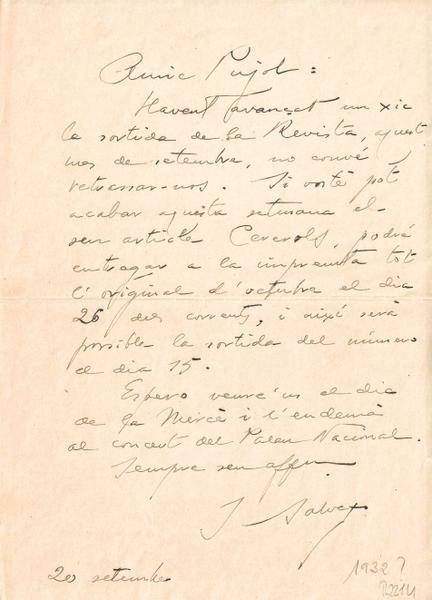 Amic Pujol:
Havent avançat un xic
la sortida de la Revista, aquest
mes de setembre, no convé
retrassar-nos. Si vostè pot
acabar aquesta setmana el
seu article Cererols, podré
entregar a la impremta tot
l'original d'octubre el dia
26 dels corrents, i així serà
possible la sortida del número
el dia 15.
Espero veure'us el dia
de la Mercè i l'endemà
al concert del Palau Nacional.
Sempre seu affm
J Salvat
20 setembre
1932?